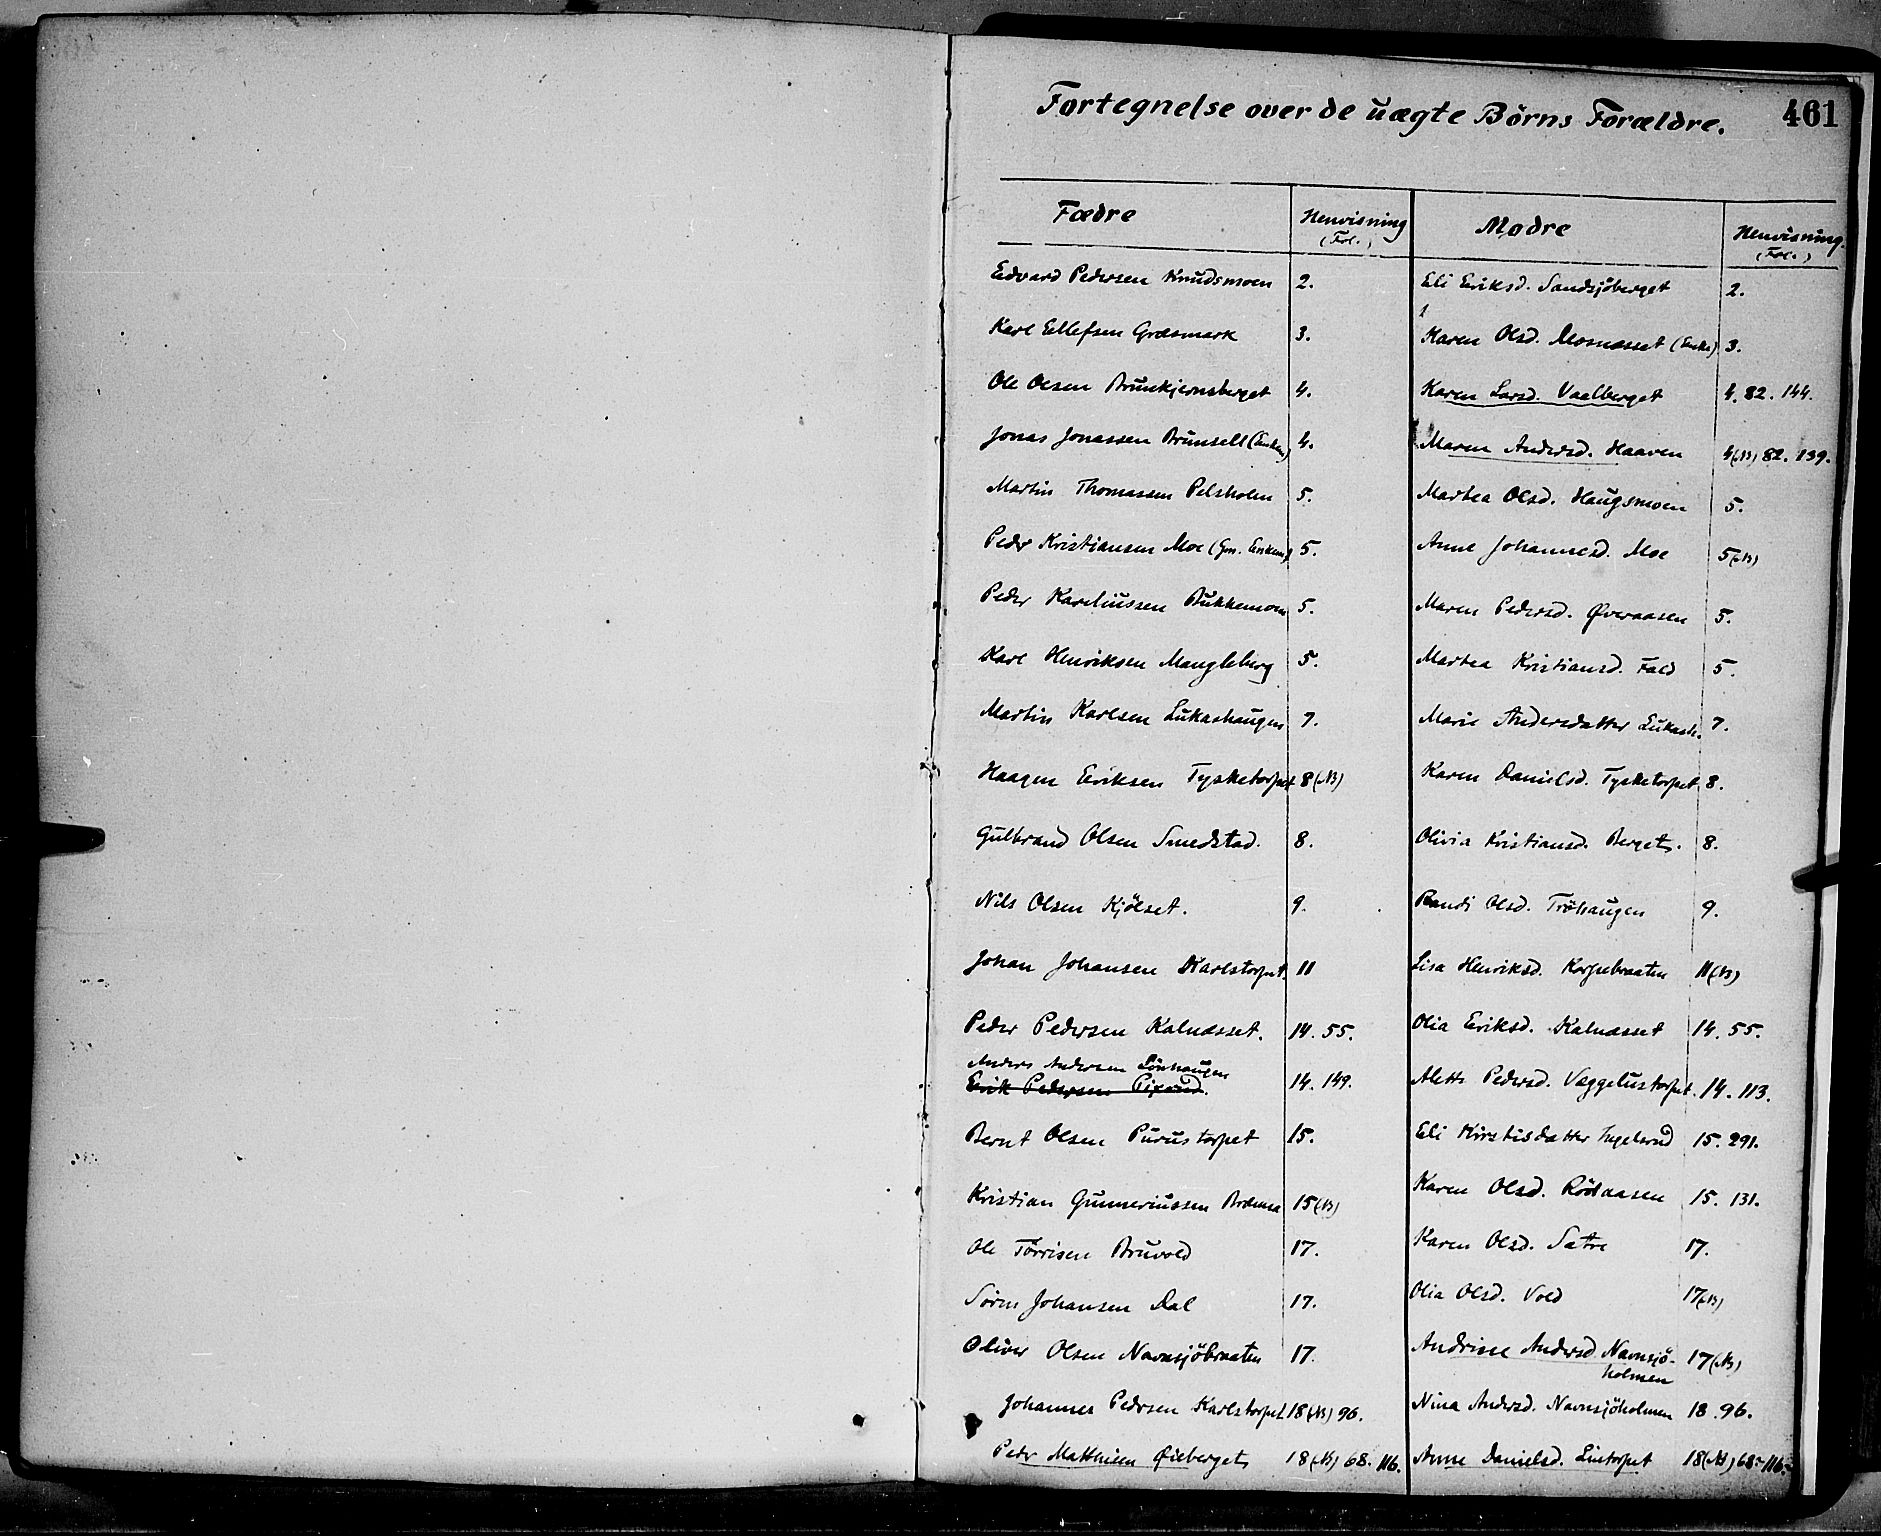 Fortegnelse over de uægte Børns Forældre. 461
Fædre Henvisning (Fol.) Mødre Henvisning. (Fol.)
Edvard Pedersen Knudsmoen 2. Eli Eriksd. Sandsjöberget 2.
Karl Ellefsen Græsmark 3. Karen Olsd. Mosnæsset (Enke) 3.
Ole Olsen Brunkjernsberget 4. Karen Larsd. Vaalberget 4. 82. 144.
Jonas Jonassen Brunsell (Enkem) 4. Maren Andersd. Haaven 4 (NB) 82. 139.
Martin Thomassen Pelsholen 5. Martea Olsd. Haugsmoen 5.
Peder Kristiansen Moe (Gm. Enkem) 5. Anne Johannesd. Moe 5 (NB)
Peder Kareliussen Bukkemoen 5. Maren Pedersd. Øveraasen 5.
Karl Henriksen Mangleberg 5. Martea Kristiansd. Fald 5.
Martin Karlsen Lukashaugen 7. Marie Andersdatter Lukash. 7.
Haagen Eriksen Tysketorpet 8 (NB) Karen Danielsd. Tysketorpet 8.
Gulbrand Olsen Smedstad. 8. Olivia Kristiansd. Berget. 8.
Nils Olsen Kjölset. 9. Randi Olsd. Tröhaugen 9.
Johan Johansen Karlstorpet 11 Lisa Henriksd. Korpebraaten 11 (NB)
Peder Pedersen Kalnæsset. 14. 55. Olia Eriksd. Kalnæsset 14. 55.
Anders Andersen Lönhaugen
Erik Pedersen 14. 149. Mette Pedersd. Væggelustorpet. 14. 113.
Bernt Olsen Purustorpet 15. Eli Kirstisdatter Ingelsrud 15. 291.
Kristian Gunneriussen Brænna 15 (NB) Karen Olsd. Rödaasen 15. 131.
Ole Torrisen Bruvold 17. Karen Olsd. Sætre 17.
Søren Johansen Dal 17. Olia Olsd. Vold 17 (NB)
Oliver Olsen Navnsjöbraaten 17. Andrine Andersd. Navnsjö-
holmen 17 (NB)
Johannes Pedersen Karlstorpet 18 (NB) 96. Nina Andersd. Navnsjöholmen 18. 96.
Peder Matthisen Øieberget 18 (NB) 68. 116. Anne Danielsd. Lintorpet 18 (NB) 68. 116.